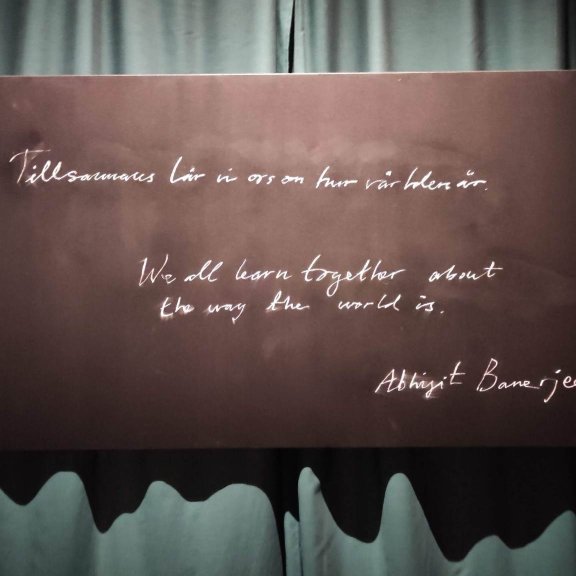 Tillsammans lär vi oss om hur världen är.
We all learn together about
the way the world is.
Abhijit Banerjee